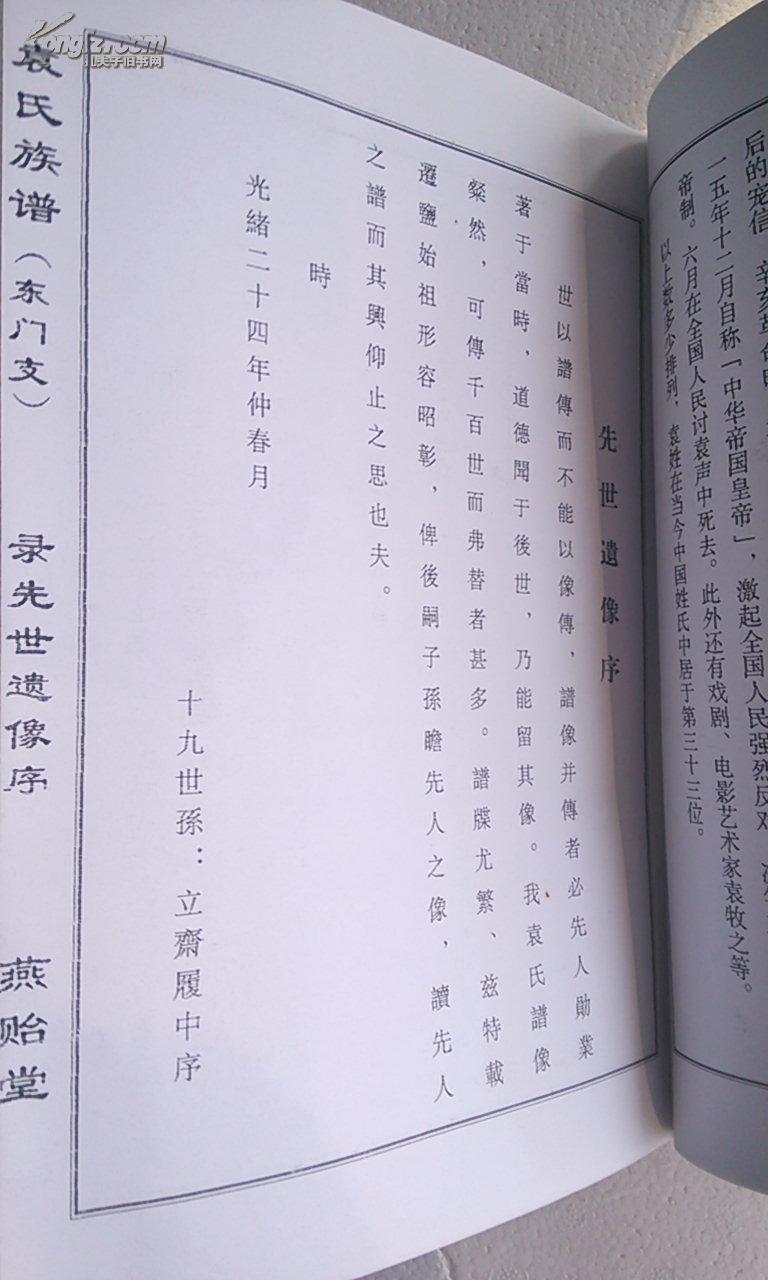 后的宠信
一五年十二月自称「中华帝国皇帝」，激起全国人民强烈反对
帝制。六月在全国人民讨袁声中死去。此外还有戏剧、电影艺术家袁牧之等。
以上数多少排列，袁姓在当今中国姓氏中居于第三十三位。
先世遺像序
世以譜傳而不能以像傳，譜像并傳者必先人勛業
著于當時，道德聞于後世，乃能留其像。我袁氏譜像
粲然，可傳千百世而弗替者甚多。譜牒尤繁、兹特載
遷鹽始祖形容昭彰，俾後嗣子孫瞻先人之像，讀先人
之譜而其興仰止之思也夫。
時
光緒二十四年仲春月
十九世孫：立齋履中序
袁氏族谱（东门支）
录先世遗像序
燕贻堂
Kongfz.com
孔夫子旧书网